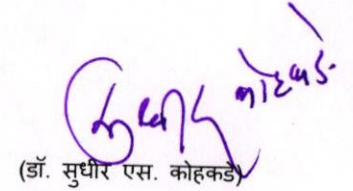 सुधीर कोहकडे
(डॉ. सुधीर एस. कोहकडे)